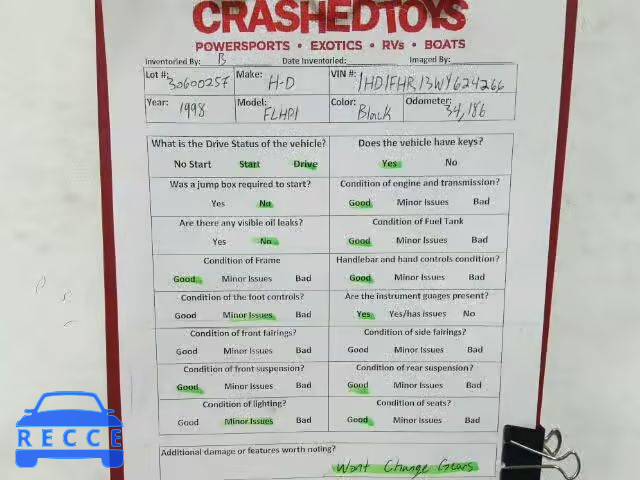 CRASHEDTOYS
POWERSPORTS • EXOTICS • RVs • BOATS
Inventoried By: B Date Inventoried: Imaged By:
Lot #: 30600257 Make: H-D VIN #: 1HD1FHR13WY624266
Year: 1998 Model: FLHPI Color: Black Odometer: 34,186
What is the Drive Status of the vehicle? Does the vehicle have keys?
No Start Start Drive Yes No
Was a jump box required to start? Condition of engine and transmission?
Yes No Good Minor Issues Bad
Are there any visible oil leaks? Condition of Fuel Tank
Yes No Good Minor Issues Bad
Condition of Frame Handlebar and hand controls condition?
Good Minor Issues Bad Good Minor Issues Bad
Condition of the foot controls? Are the instrument guages present?
Good Minor Issues Bad Yes Yes/has issues No
Condition of front fairings? Condition of side fairings?
Good Minor Issues Bad Good Minor Issues Bad
Condition of front suspension? Condition of rear suspension?
Good Minor Issues Bad Good Minor Issues Bad
Condition of lighting? Condition of seats?
Good Minor Issues Bad Good Minor Issues Bad
Additional damage or features worth noting?
Wont Change Gears
RECCE